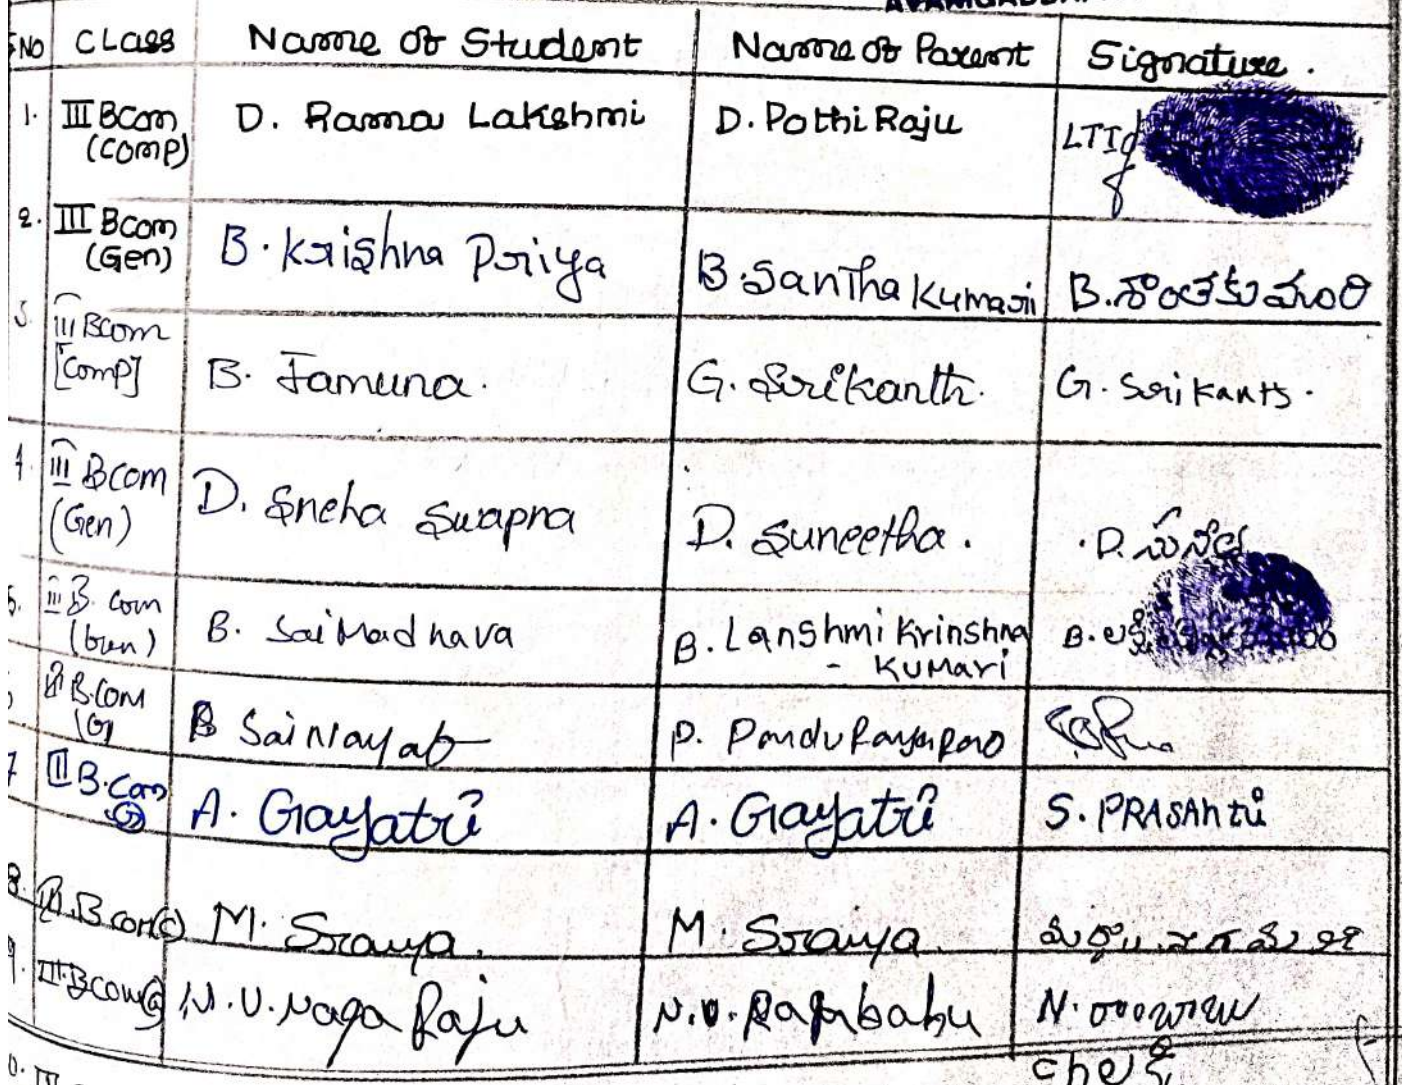 SNO CLass Name of Student Name of Parent Signature.
1. III BCom (Comp) D. Rama Lakshmi D. Pothi Raju LTI of
2. III BCom (Gen) B. Krishna Priya B. Santha Kumari B. శాంతకుమారి
3. III BCom [Comp] B. Jamuna. G. Srikanth. G. Srikanth.
4. III BCom (Gen) D. Sneha Swapna D. Suneetha. D. సునీత
5. III B. Com (Gen) B. Sai Madhava B. Lanshmi Krinshna - Kumari B.
B.Com (G) B Sai Nayab P.
7 III B.Com (G) A. Gayatri A. Gayatri S. PRASAnti
8. III B com(c) M. Sravya. M. Sravya.
9. III Bcom(G) N.V. Naga Raju N.V. Rajubabu N.